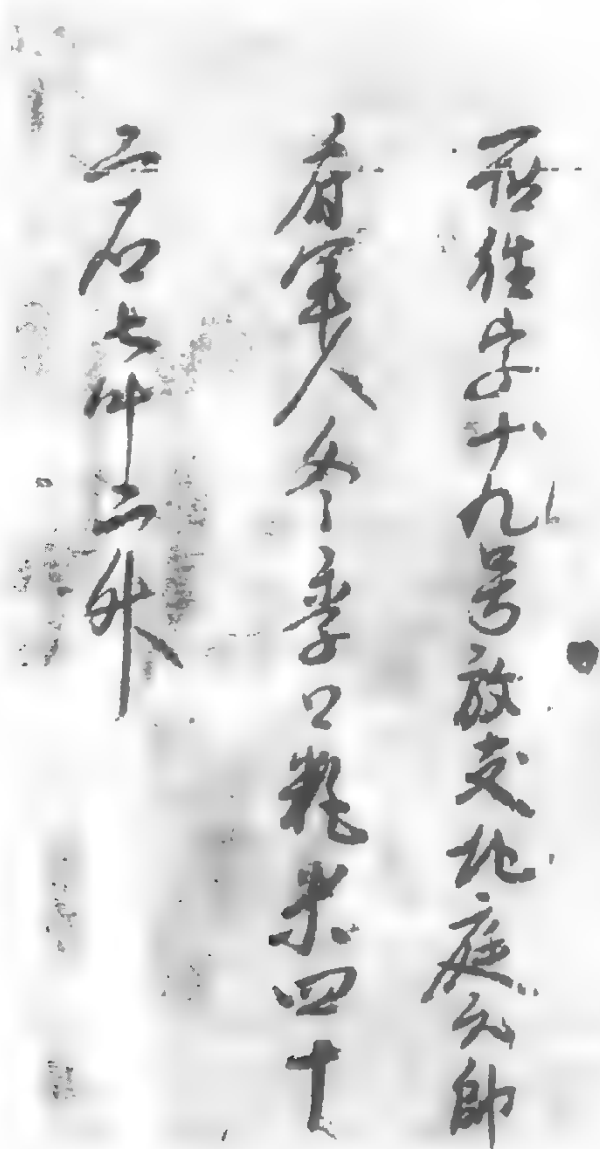 一帖往字十九号放支北庭元帥
府軍人冬季口粮米四十
二石七斗二升